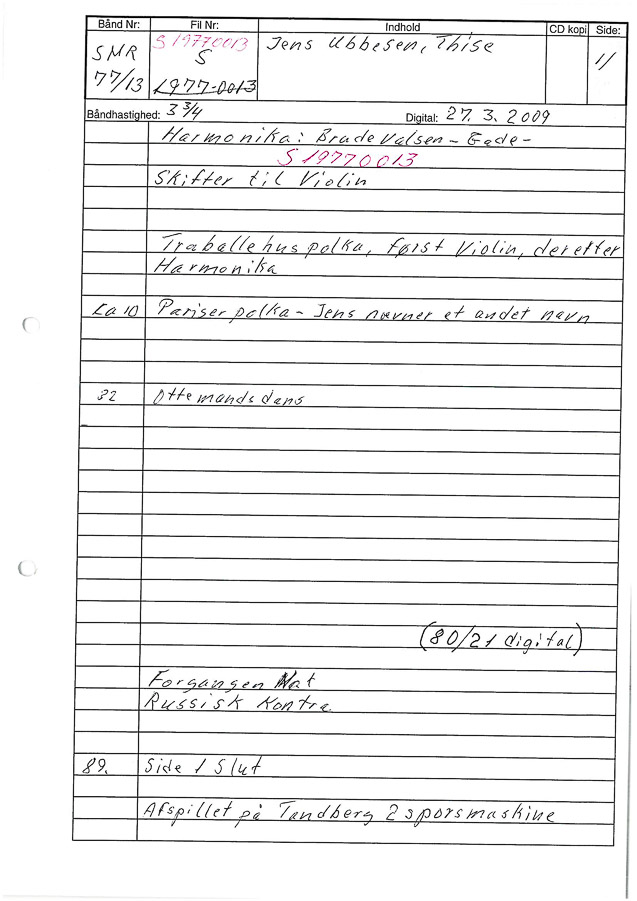 Bånd Nr: Fil Nr: Indhold CD kopi Side:
SMR S 19770013 Jens Ubbesen, Thise 1/
S
77/13 1977-0013
Båndhastighed: 3 3/4 Digital: 27. 3. 2009
Harmonika: BrudeValsen - Gade -
S 19770013
Skifter til Violin
Traballehuspolka, først Violin, derefter
Harmonika
Ca 10 Pariserpolka - Jens nævner et andet navn
82 Ottemandsdans
(80/21 digital)
Forgangen Nat
Russisk Kontra
89. Side 1 Slut
Afspillet på Tandberg 2 sporsmaskine